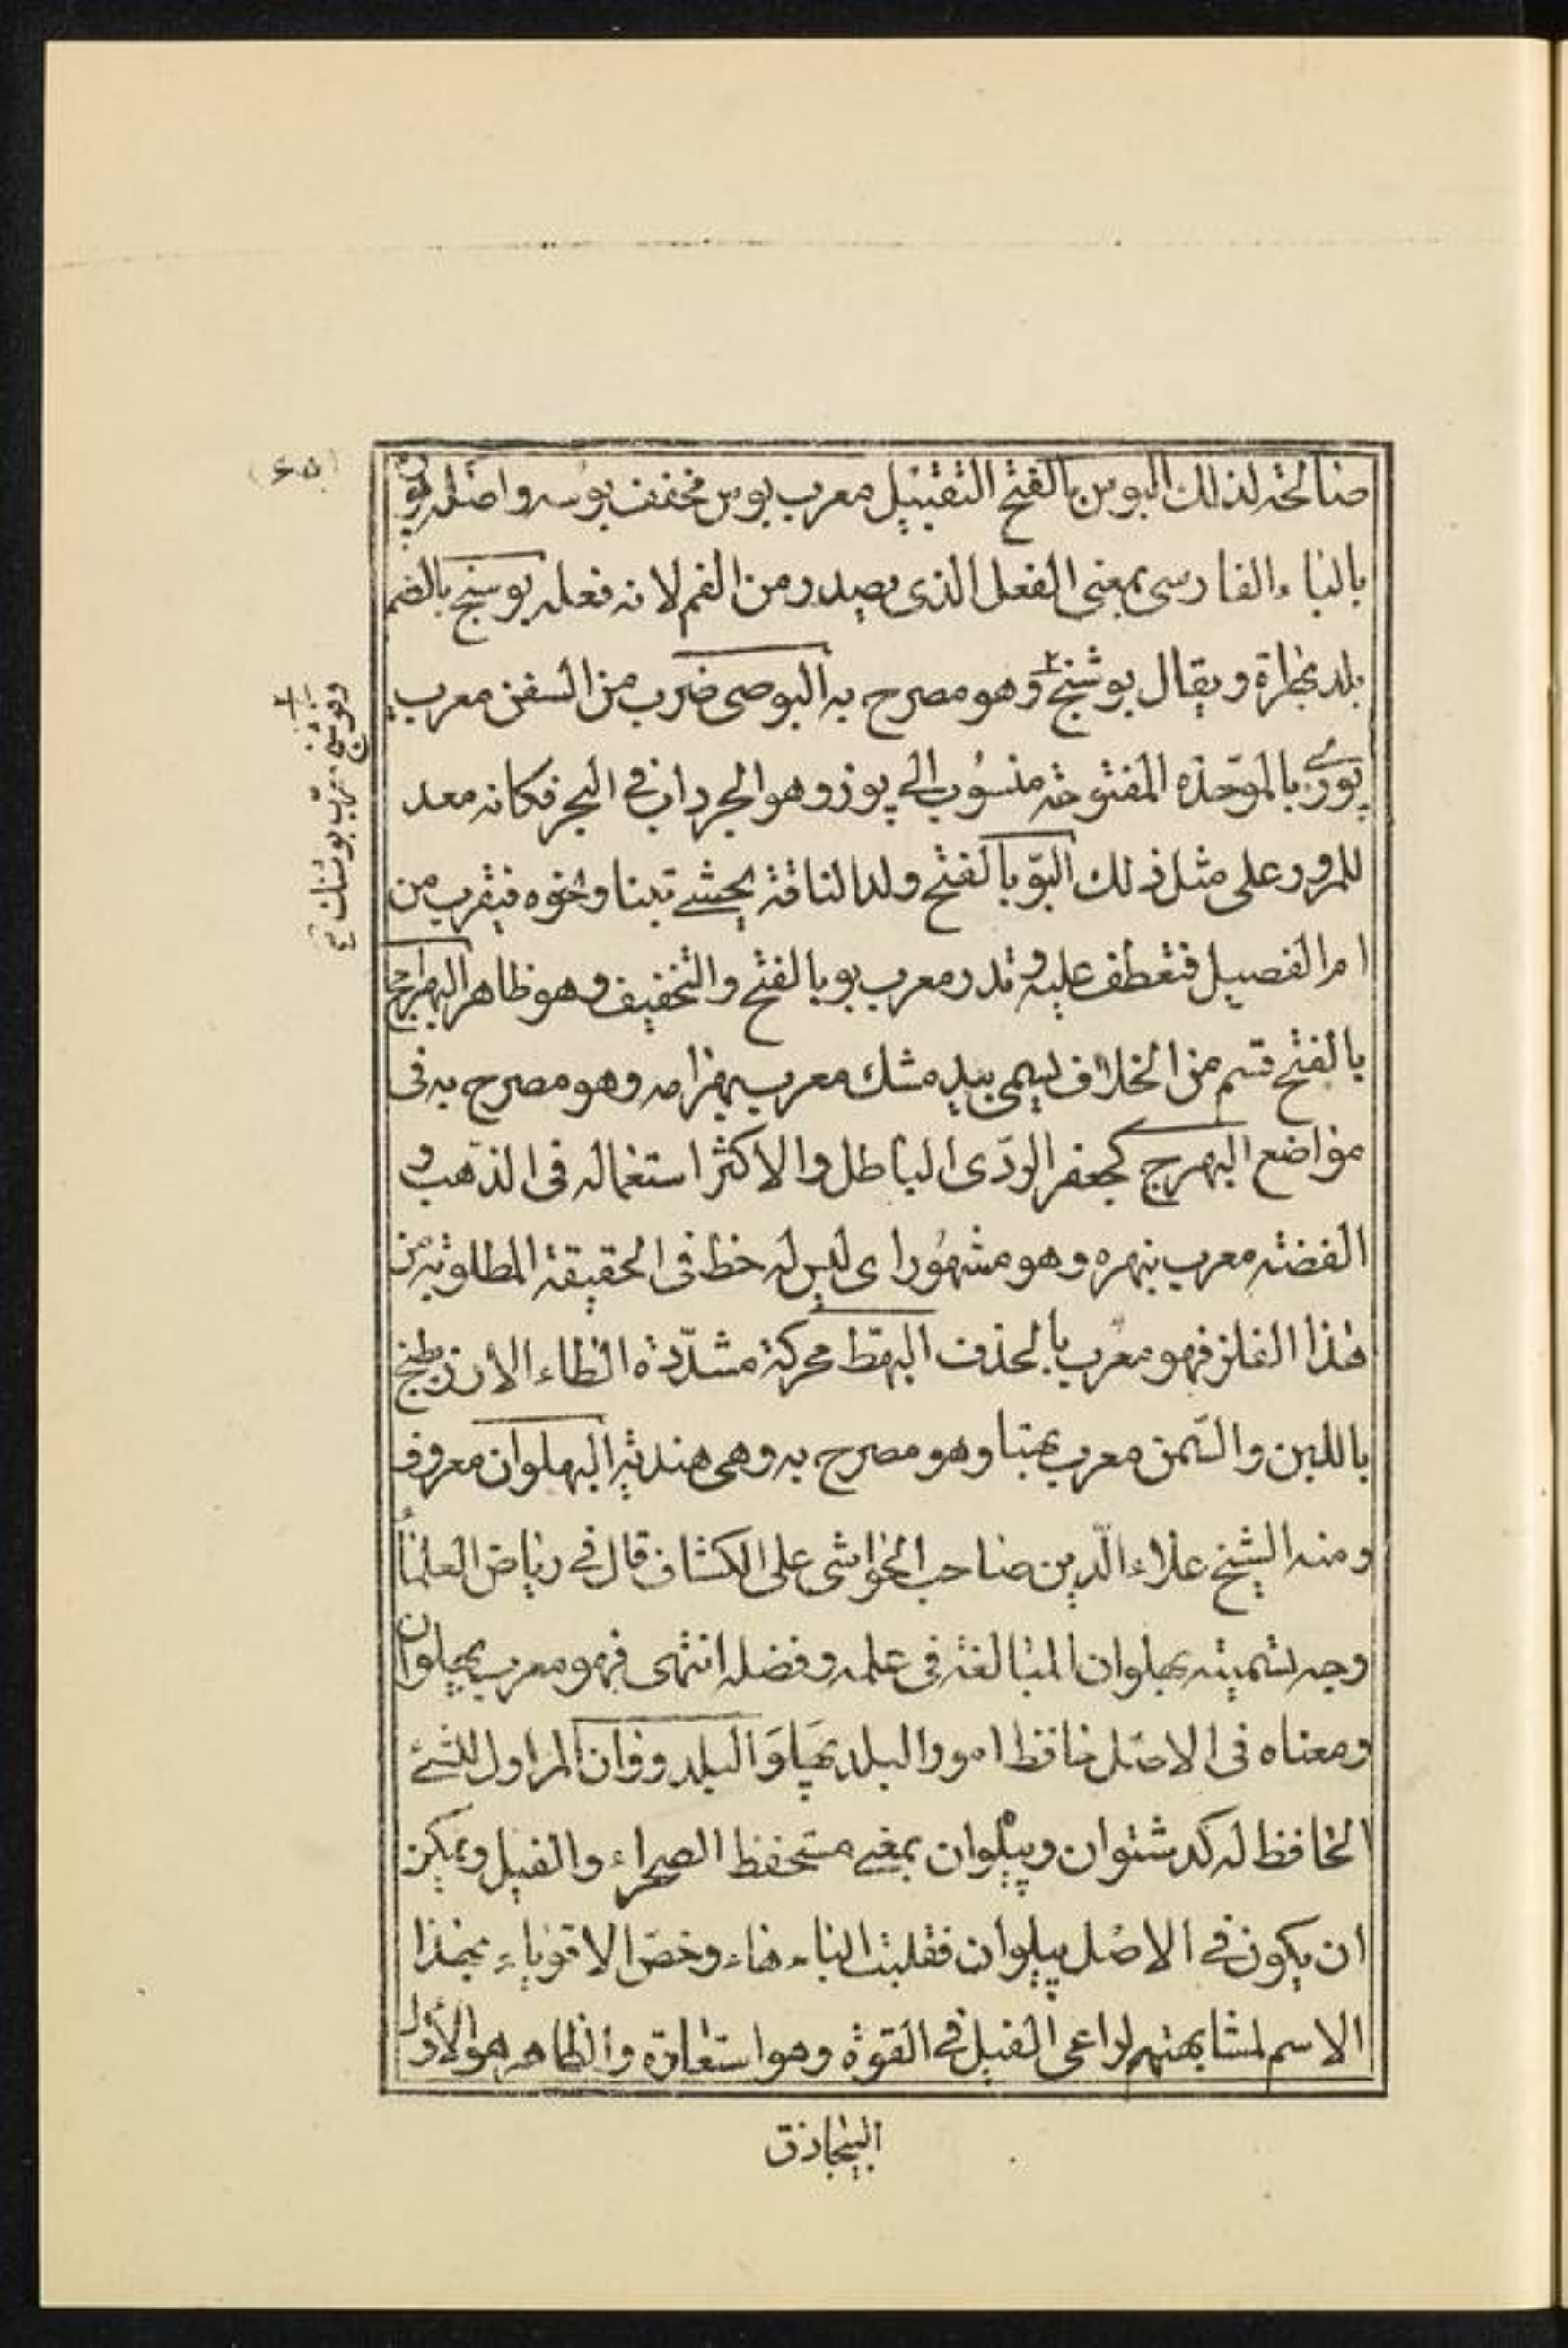 (٦٥)
صالحة لذلك البوس بالفتح التقبيل معرب بوس مخفف بوسه واصله پوزه
بالباء الفارسى بمعنى الفعل الذى يصدر من الفم لانه فعله بوسنج بالضم
بلد بهراة ويقال بوشنج وهو مصرح به البوصى ضرب من السفن معرب
پوزى بالموحدة المفتوحة منسوب الى پوز وهو الجرداب فى البحر فكانه معد
للمرور على مثل ذلك البوّ بالفتح ولد الناقة يحشى تبنا ونحوه فيقرب من
ام الفصيل فتعطف عليه وتدر معرب بو بالفتح والتخفيف وهو ظاهر البهرامج
بالفتح قسم من الخلاف يسمى بيد مشك معرب بهرامه وهو مصرح به فى
مواضع البهرج كجعفر الردّى الباطل والاكثر استعماله فى الذهب و
الفضة معرب نبهره وهو مشهور اى ليس له حظ فى الحقيقة المطلوبة من
هذا الفلز فهو معرب بالحذف البهطّ محركة مشدّدة الطاء الارز يطبخ
باللبن والسّمن معرب بهتا وهو مصرح به وهى هندية البهلوان معروف
ومنه الشيخ علاء الدّين صاحب الحواشى على الكشاف قال فى رياض العلماء
وجه تسميته بهلوان المبالغة فى علمه وفضله انتهى فهو معرب پهلوان
ومعناه فى الاصل حافظ امور البلد پهلو البلد ووان المزاول للشئ
الحافظ له كدشتوان وپيلوان بمعنى مستحفظ الصحراء والفيل ويمكن
ان يكون فى الاصل پيلوان فقلبت الياء هاء وخصّ الاقوياء بهذا
الاسم لمشابهتهم لراعى الفيل فى القوة وهو استعارة والظاهر هو الاول
البيجاذق
وبوشنج معرب بوشنك